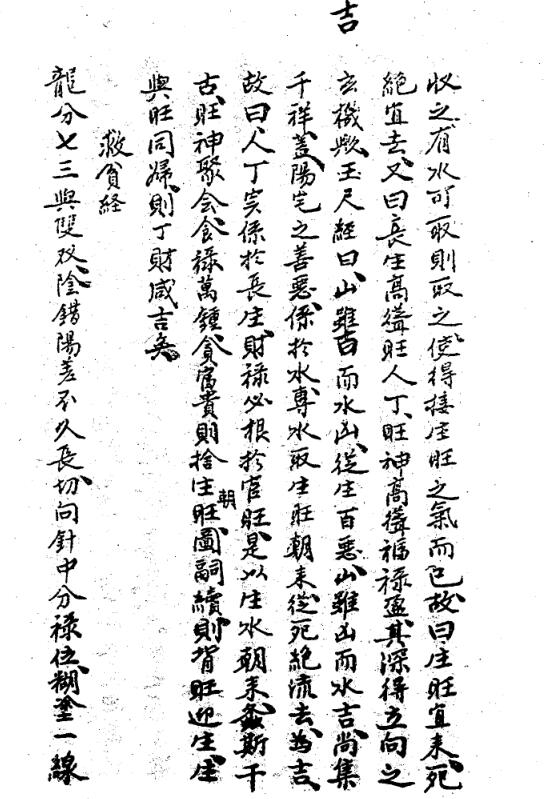 吉
收之有水可取則取之使得接生旺之氣而已故曰生旺宜來死
絕宜去又曰長生高聳旺人丁旺神高聳福祿盈其深得立向之
玄機歟玉尺經曰山雖吉而水凶從生百惡山雖凶而水吉尚集
千祥蓋陽宅之善惡係於水專水取生旺朝來從死絕流去為吉
故曰人丁实係於長生財祿必根於官旺是以生水朝來螽斯千
古旺神聚会食祿萬鍾貪富貴則捨生旺朝圖嗣續則背旺迎生生
與旺同歸則丁財咸吉矣
救貧経
龍分七三與雙双陰錯陽差不久長切向針中分祿位糊塗一線